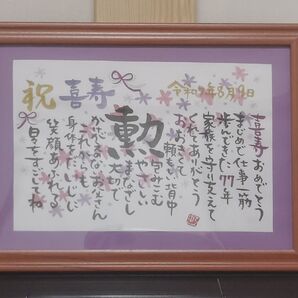 祝 喜寿
令和7年8月9日
喜寿おめでとう
まじめで仕事一筋
歩んできた77年
家族を守り支えて
くれてありがとう
おおきくて
頼もしい背中
勲
包みこむ
やさしい
まなざし
大切で
かけがえのないお父さん
これからも
身体を大事に
笑顔あふれる
日々をすごしてね